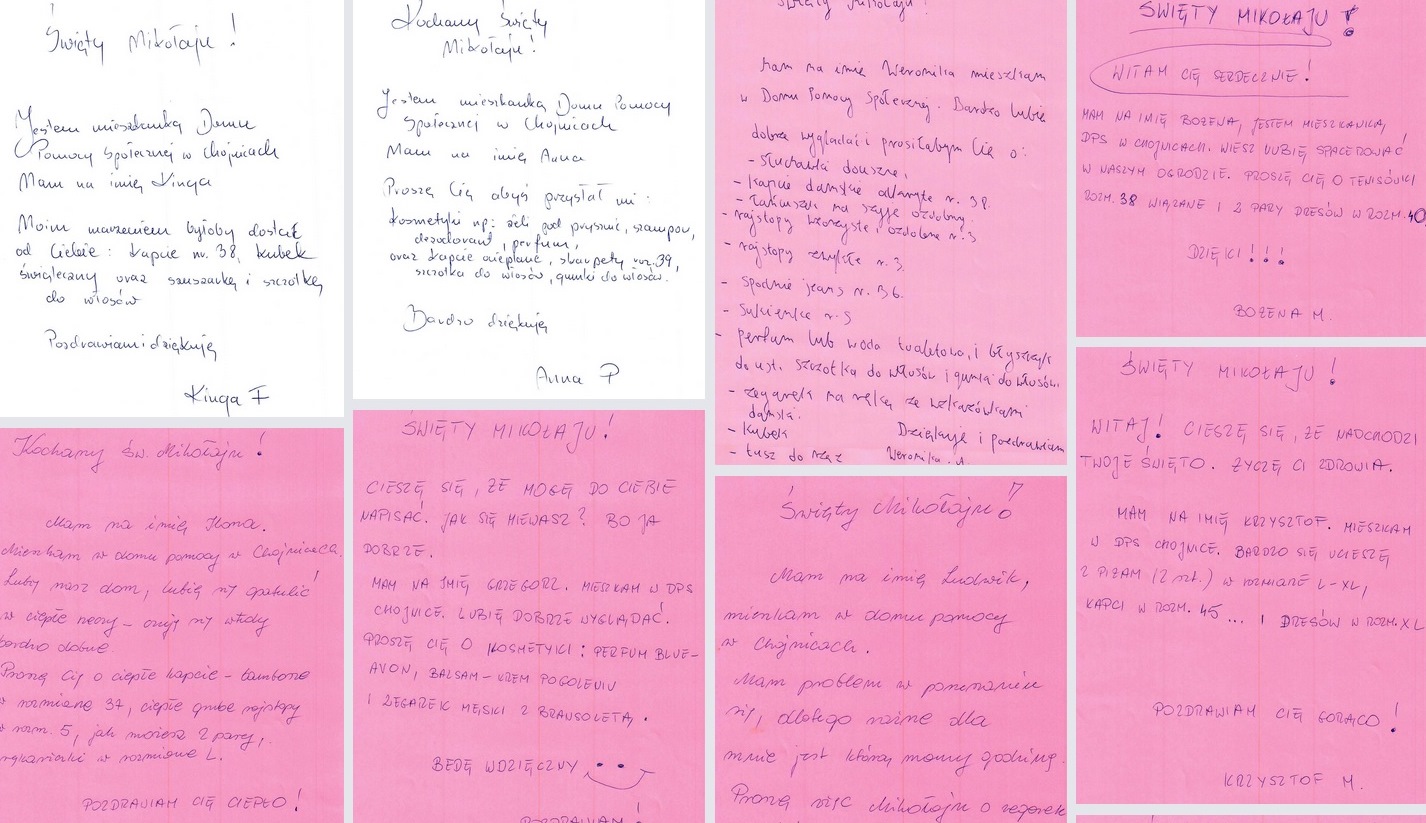 Święty Mikołaju!
Jestem mieszkanką Domu
Pomocy Społecznej w Chojnicach
Mam na imię Kinga
Moim marzeniem byłoby dostać
od Ciebie: kapcie nr. 38, kubek
świąteczny oraz suszarkę i szczotkę
do włosów
Pozdrawiam i dziękuję
Kinga F
Kochany św. Mikołaju!
Mam na imię Ilona.
Mieszkam w domu pomocy w Chojnicach.
Lubię nasz dom, lubię się opatulić
w ciepłe rzeczy – czuję się wtedy
bardzo dobrze.
Proszę Cię o ciepłe kapcie –
w rozmiarze 37, ciepłe grube rajstopy
w rozm. 5, jak możesz 2 pary,
rękawiczki w rozmiarze L.
POZDRAWIAM CIĘ CIEPŁO!
Kochany Święty
Mikołaju!
Jestem mieszkanką Domu Pomocy
Społecznej w Chojnicach
Mam na imię Anna
Proszę Cię abyś przysłał mi:
kosmetyki np: żeli pod prysznic, szampon,
dezodorant, perfum,
oraz kapcie ocieplane, skarpety roz. 39,
szczotka do włosów, gumki do włosów.
Bardzo dziękuję
Anna P
ŚWIĘTY MIKOŁAJU!
CIESZĘ SIĘ, ŻE MOGĘ DO CIEBIE
NAPISAĆ. JAK SIĘ MIEWASZ? BO JA
DOBRZE.
MAM NA IMIĘ GRZEGORZ. MIESZKAM W DPS
CHOJNICE. LUBIĘ DOBRZE WYGLĄDAĆ.
PROSZĘ CIĘ O KOSMETYKI: PERFUM BLUE-
AVON, BALSAM-KREM POGOLENIU
I ZEGAREK MĘSKI Z BRANSOLETĄ.
BĘDĘ WDZIĘCZNY
POZDRAWIAM!
Święty Mikołaju!
Mam na imię Weronika mieszkam
w Domu Pomocy Społecznej. Bardzo lubię
dobrze wyglądać i prosiłabym Cię o:
- Słuchawki douszne,
- kapcie damskie odkryte n. 38.
- Łańcuszek na szyję ozdobny.
- rajstopy wzorzyste, ozdobne n. 3
- rajstopy zwykłe n. 3.
- Spodnie jeans n. 36.
- Sukienkę n. S
- perfum lub woda toaletowa, i błyszczyk
do ust. Szczotka do włosów i gumka do włosów.
- zegarek na rękę ze wskazówkami
damski.
- kubek
Dziękuję i pozdrawiam
- tusz do rzęs
Weronika. A.
Święty Mikołaju!
Mam na imię Ludwik,
mieszkam w domu pomocy
w Chojnicach.
Mam problem w poruszaniu
się, dlatego ważne dla
mnie jest którą mamy godzinę.
Proszę więc Mikołaju o zegarek
ŚWIĘTY MIKOŁAJU!
WITAM CIĘ SERDECZNIE!
MAM NA IMIĘ BOŻENA, JESTEM MIESZKANKĄ
DPS W CHOJNICACH. WIESZ LUBIĘ SPACEROWAĆ
W NASZYM OGRODZIE. PROSZĘ CIĘ O TENISÓWKI
ROZM. 38 WIĄZANE I 2 PARY DRESÓW W ROZM. 40
DZIĘKI!!!
BOŻENA M.
ŚWIĘTY MIKOŁAJU!
WITAJ! CIESZĘ SIĘ, ŻE NADCHODZI
TWOJE ŚWIĘTO. ŻYCZĘ CI ZDROWIA.
MAM NA IMIĘ KRZYSZTOF. MIESZKAM
W DPS CHOJNICE. BARDZO SIĘ UCIESZĘ
Z PIŻAM (2 szt.) W ROZMIARZE L-XL,
KAPCI W ROZM. 45 ... I DRESÓW W ROZM. XL
POZDRAWIAM CIĘ GORĄCO!
KRZYSZTOF M.